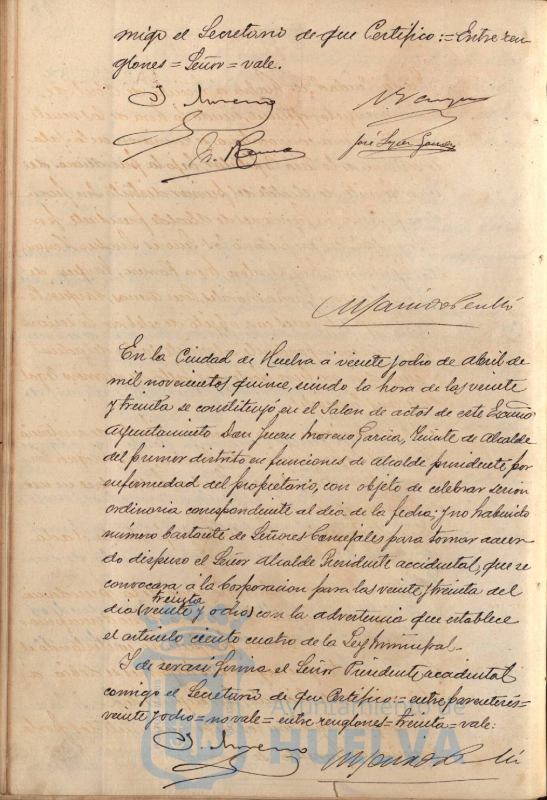 migo el Secretario de que Certifico:=Entre ren-
glones=Señor=vale.
J. Moreno
José López Gómez
En la Ciudad de Huelva á veinte y ocho de Abril de
mil novecientos quince, siendo la hora de las veinte
y treinta se constituyó en el Salon de actos de este Excmo
Ayuntamiento Don Juan Moreno Garcia, Teniente de Alcalde
del primer distrito en funciones de Alcalde presidente por
enfermedad del propietario, con objeto de celebrar sesion
ordinaria correspondiente al dia de la fecha; y no habiendo
número bastante de Señores Concejales para tomar acuer-
do dispuso el Señor Alcalde Presidente accidental, que se
convocara á la Corporacion para las veinte y treinta del
treinta
dia (veinte y ocho) con la advertencia que establece
el artículo ciento cuatro de la Ley Municipal.
Y de ser asi firma el Señor Presidente accidental
comigo el Secretario de que Certifico:=entre parentesis=
veinte y ocho=no vale=entre renglones=treinta=vale:
J. Moreno
Ayuntamiento de
HUELVA